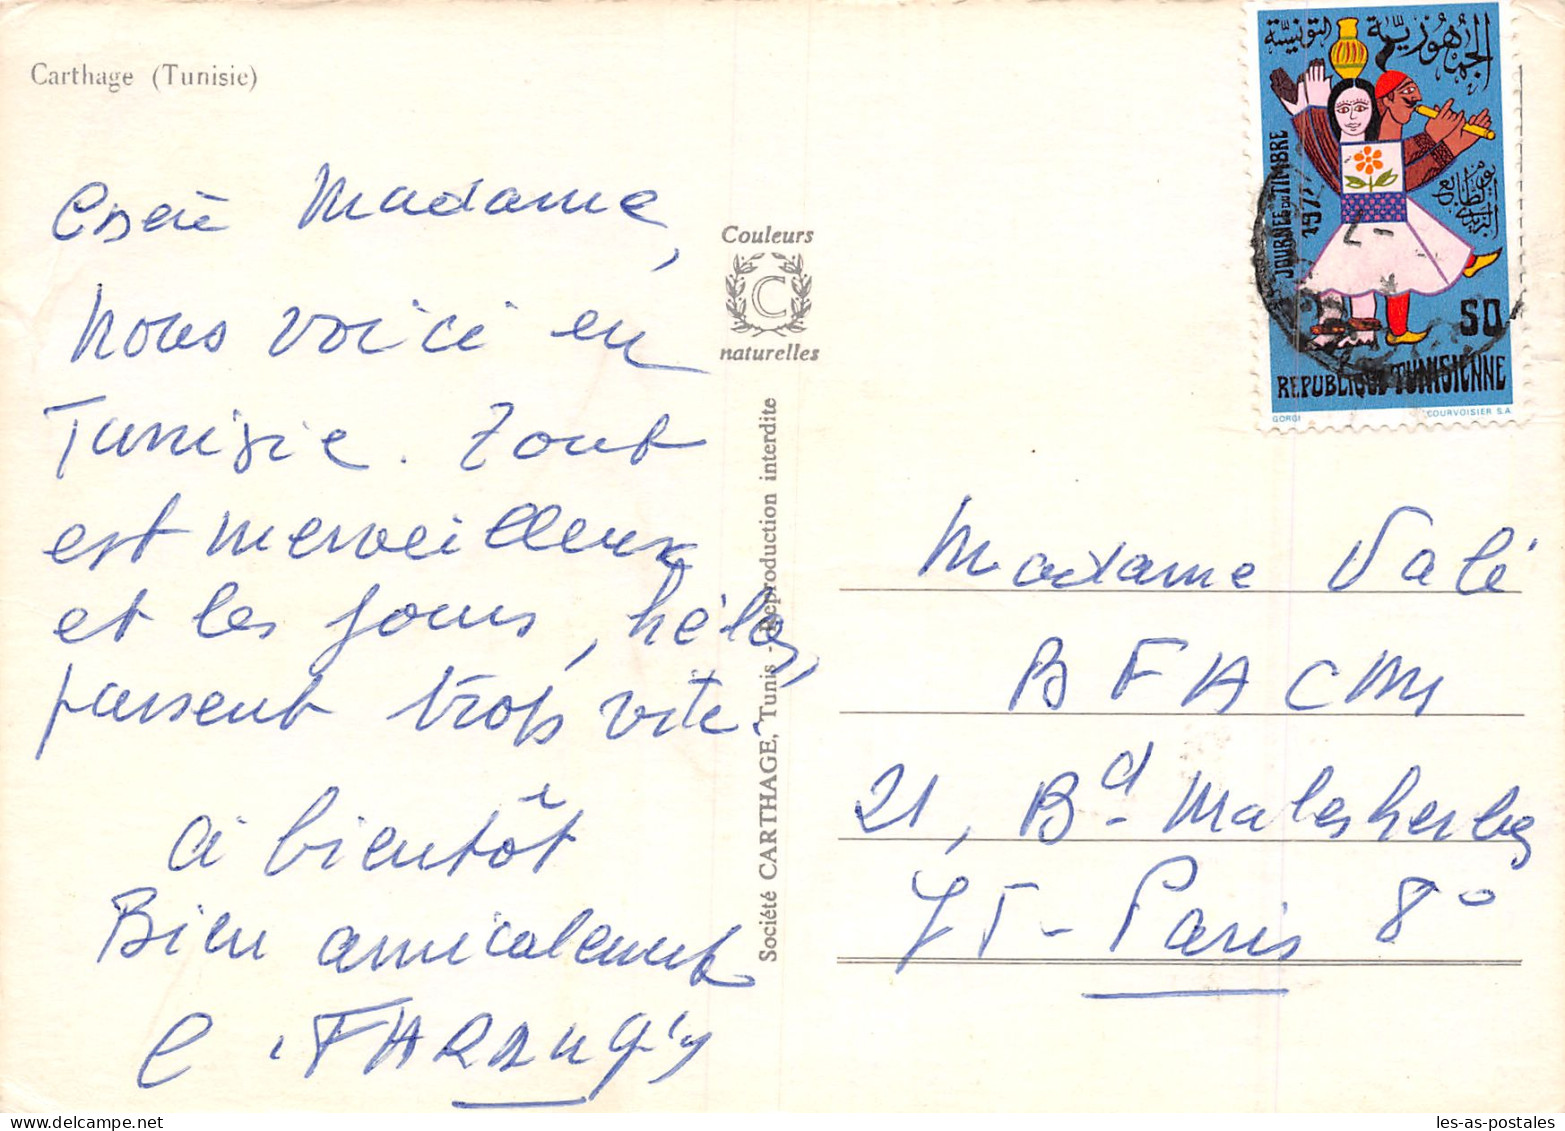 Carthage (Tunisie)
Chère Madame,
Nous voici en
Tunisie. Tout
est merveilleux
et les jours, hélas,
passent trop vite.
à bientôt
Bien amicalement
Couleurs
C
naturelles
Société CARTHAGE, Tunis - Reproduction interdite
الجمهورية التونسية
يوم الطابع البريدي
JOURNEE DU TIMBRE
50
REPUBLIQUE TUNISIENNE
GORGI
COURVOISIER S.A
Madame Valé
B F A C M
21, Bd Malesherbes
75 - Paris 8°
les-as-postales